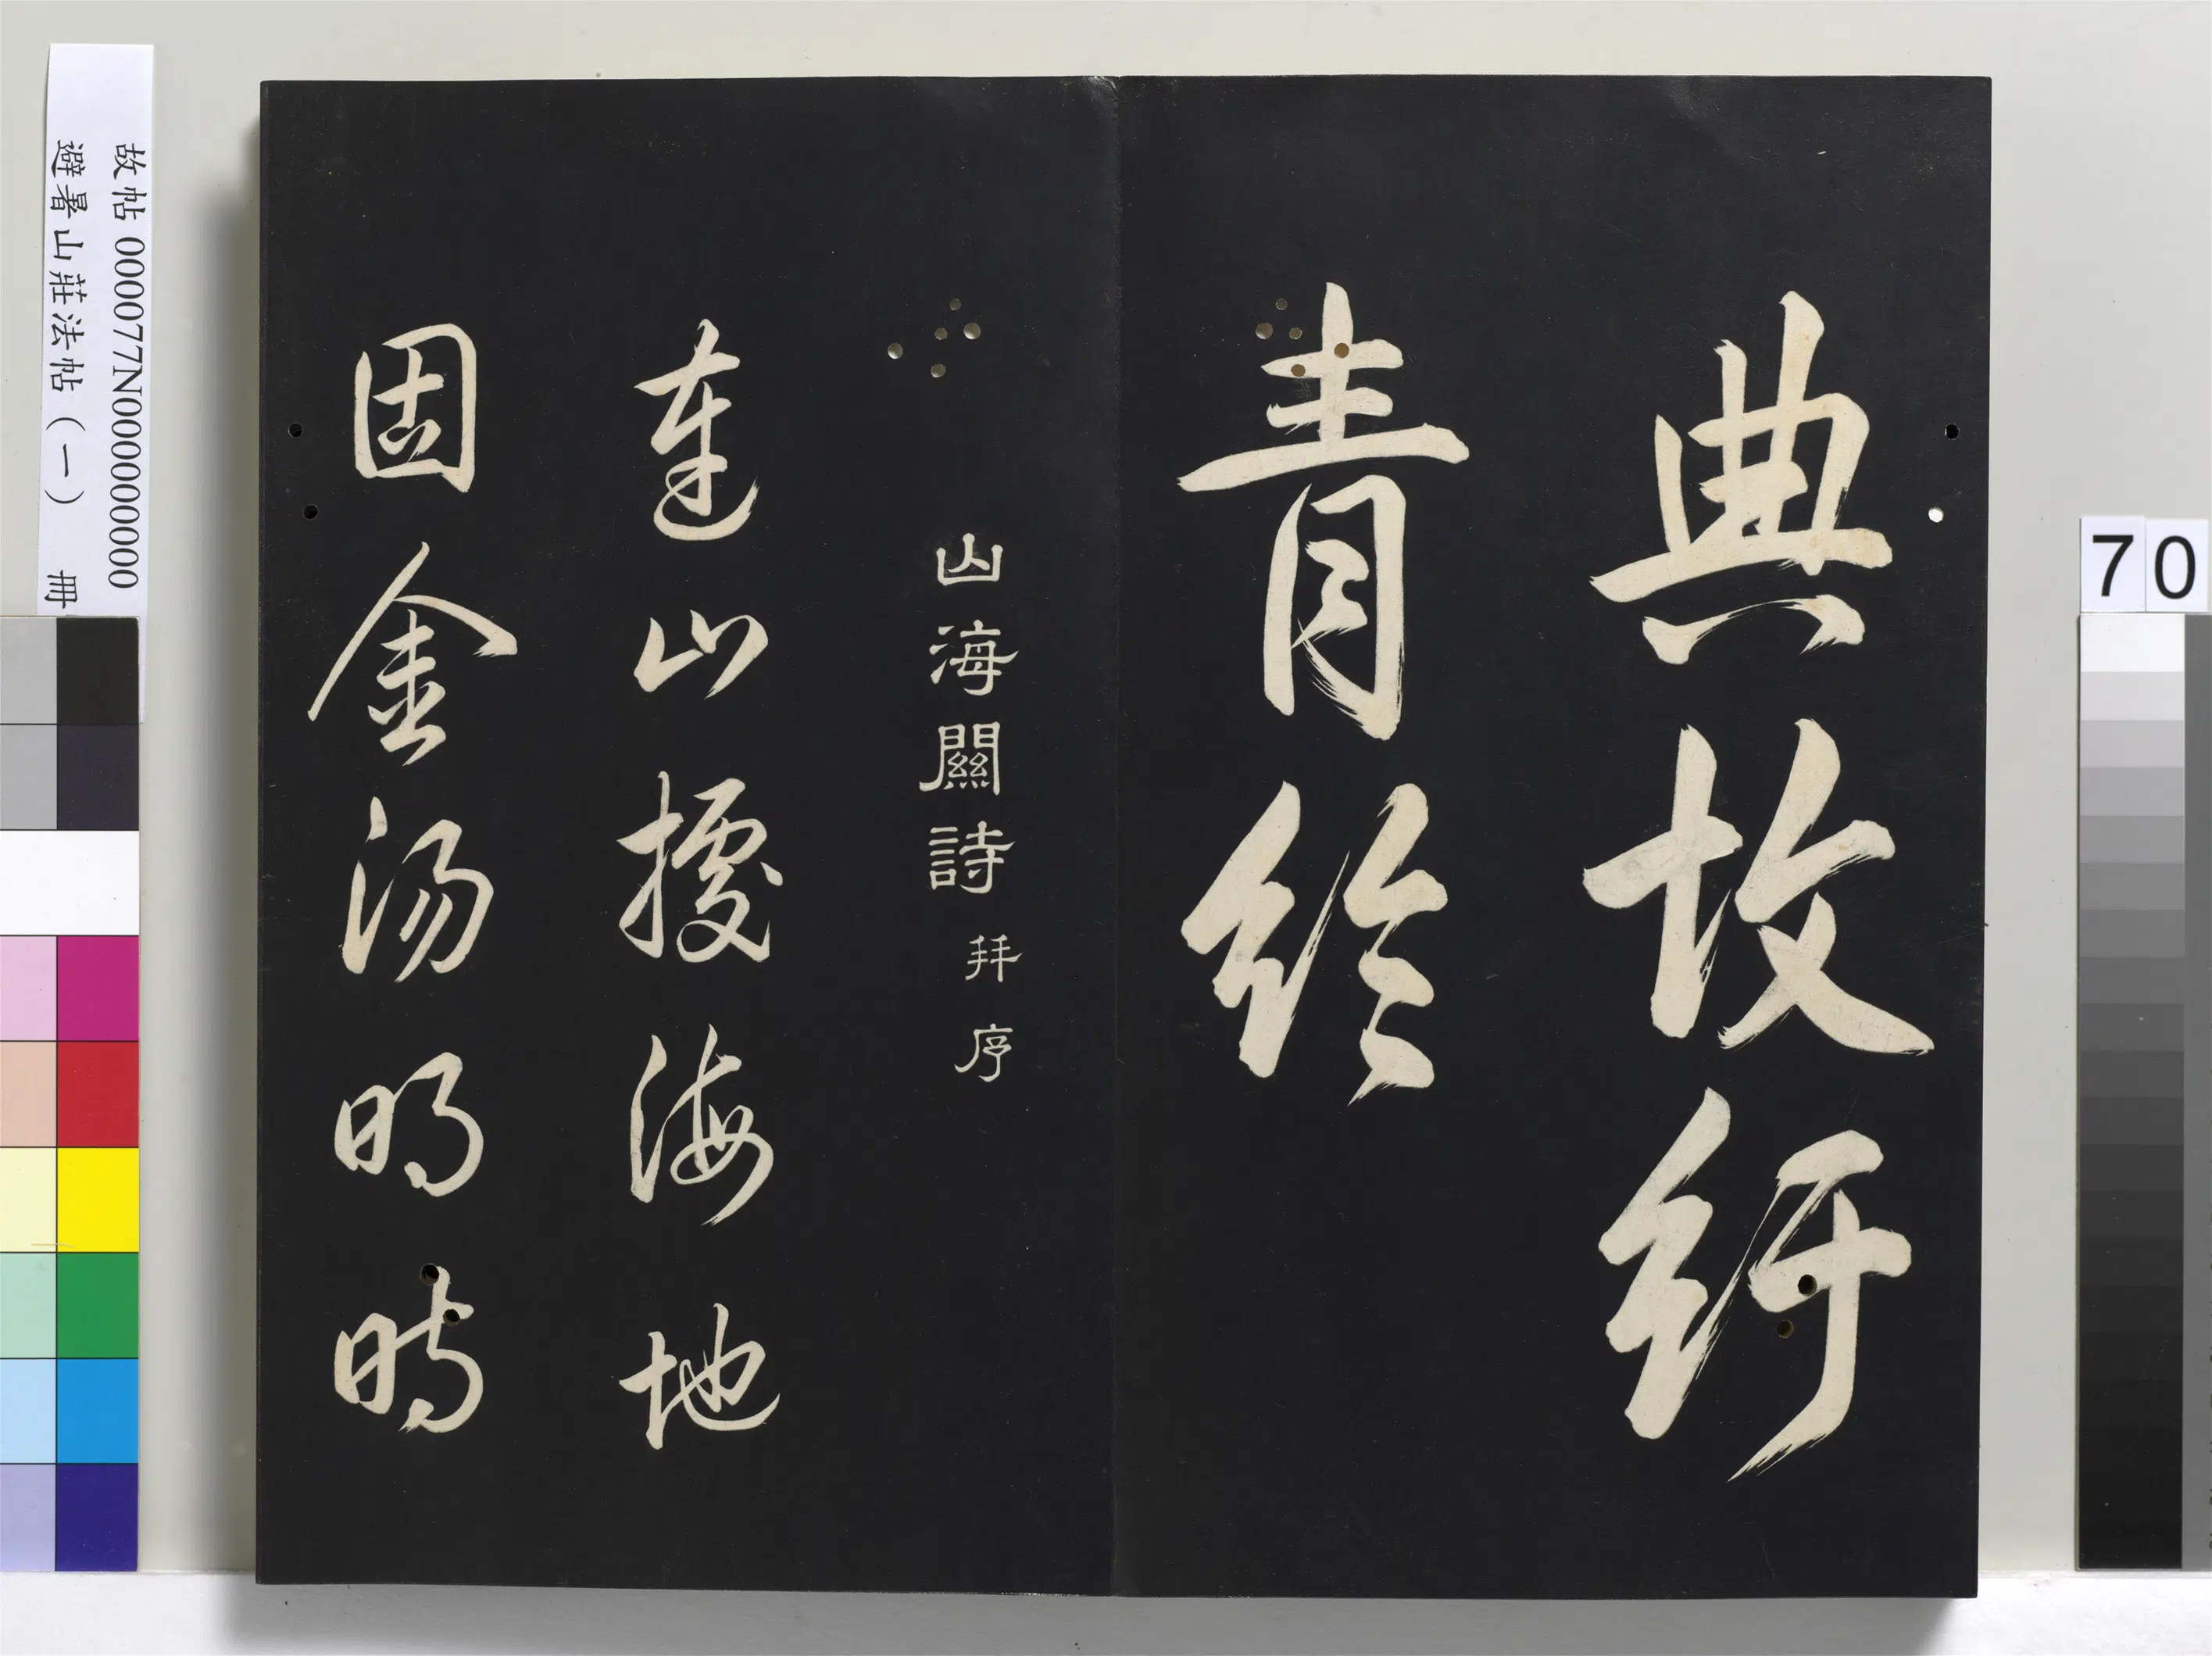 典故紆
青
山海關詩 并序
連山據海地
固金湯明時
故帖 000077N000000000
避暑山莊法帖(一) 冊
70